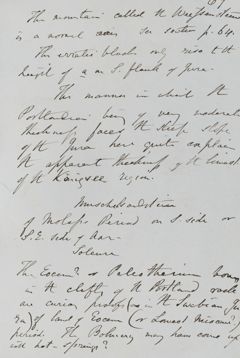 The mountain called the Weissenstein
is a normal see section p. 64.
The erratic blocks only rise to the
height of on S. flank of Jura.
The manner in which the
Portlandian being of very moderate
thickness faces the steep slope
of the Jura here quite explains
the apparent thickness of the
of the region.
Muschelsandstein
of Molasse Period on S. side or
S.E. side of Aar
Soleure
The Eocene? or Paleotherium bones
in the clefts of the Portland rock
are curious in the Swabian
of land of Eocene (or Lower Miocene?)
period. The may have come up
with hot springs?